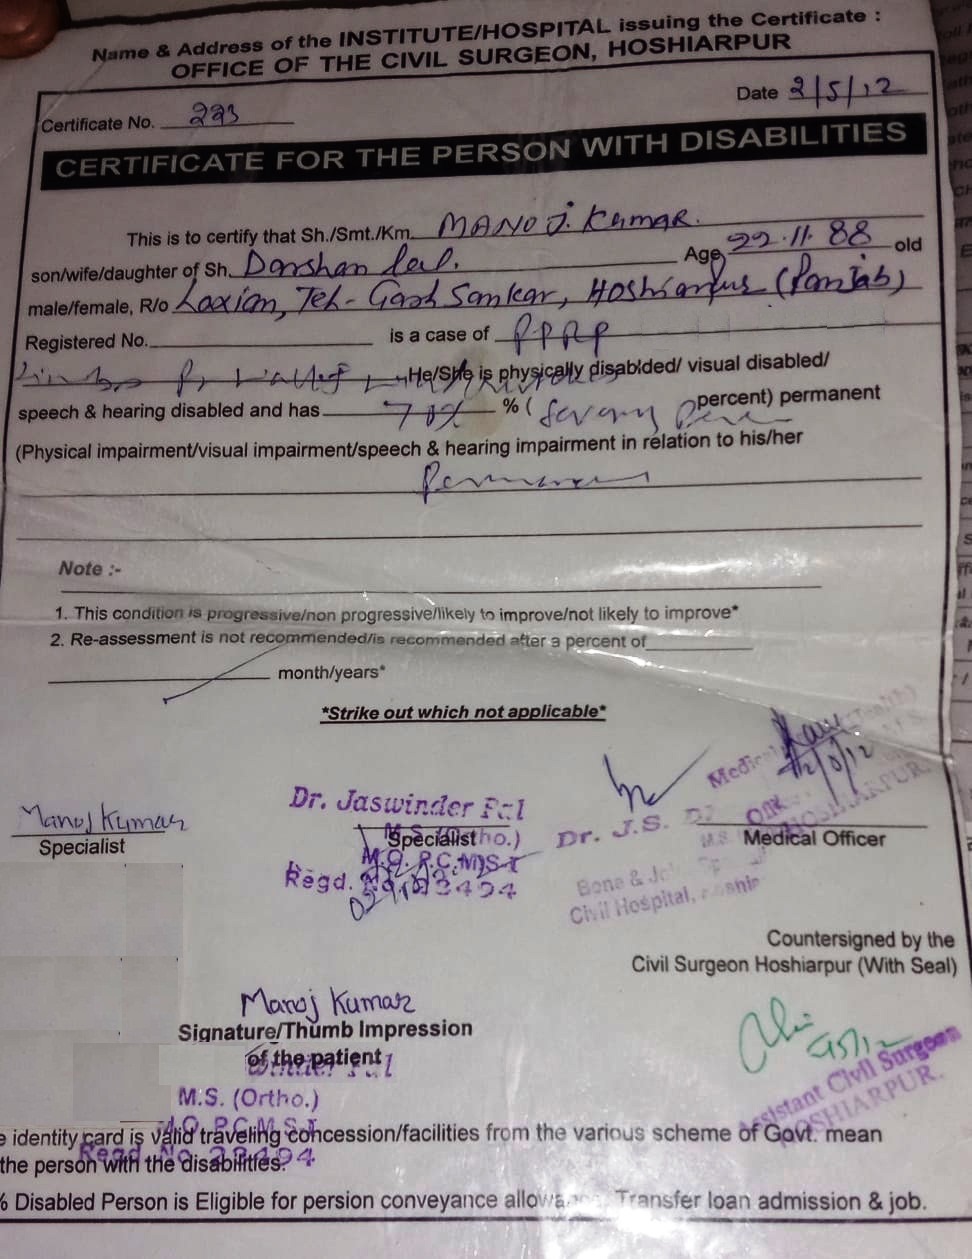 Name & Address of the INSTITUTE/HOSPITAL issuing the Certificate :
OFFICE OF THE CIVIL SURGEON, HOSHIARPUR
Date 2/5/12
Certificate No. 223
CERTIFICATE FOR THE PERSON WITH DISABILITIES
This is to certify that Sh./Smt./Km. MANOJ. Kumar.
son/wife/daughter of Sh. Darshan Lal. Age 22.11.88 old
male/female, R/o Laxian, Teh- Gash Sankar, Hoshiarpur (Panjab)
Registered No. is a case of PPRP
He/She is physically disablded/ visual disabled/
speech & hearing disabled and has 70% % ( percent) permanent
(Physical impairment/visual impairment/speech & hearing impairment in relation to his/her
Permanent
Note :-
1. This condition is progressive/non progressive/likely to improve/not likely to improve*
2. Re-assessment is not recommended/is recommended after a percent of
month/years*
*Strike out which not applicable*
Manoj Kumar
Specialist
Dr. Jaswinder Pal
Specialist
M.S. (Ortho.)
M.O. P.C.M.S-I
Regd. No. 23494
Dr. J.S.
Medical Officer
Bone &
Civil Hospital,
HOSHIARPUR.
Countersigned by the
Civil Surgeon Hoshiarpur (With Seal)
Manoj Kumar
Signature/Thumb Impression
of the patient
M.S. (Ortho.)
Assistant Civil Surgeon
HOSHIARPUR.
e identity card is valid traveling concession/facilities from the various scheme of Govt. mean
the person with the disabilities.
Regd. No. 23494
% Disabled Person is Eligible for persion conveyance allowance, Transfer loan admission & job.